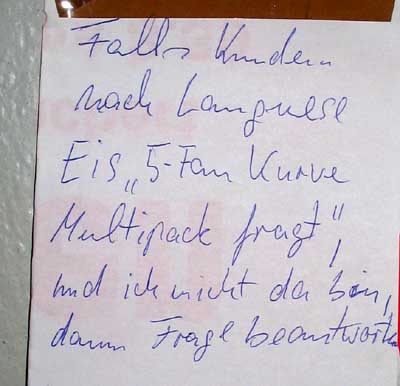 Falls Kunden
nach Langnese
Eis „5-Fan Kurve
Multipack fragt",
und ich nicht da bin,
dann Frage beantworten